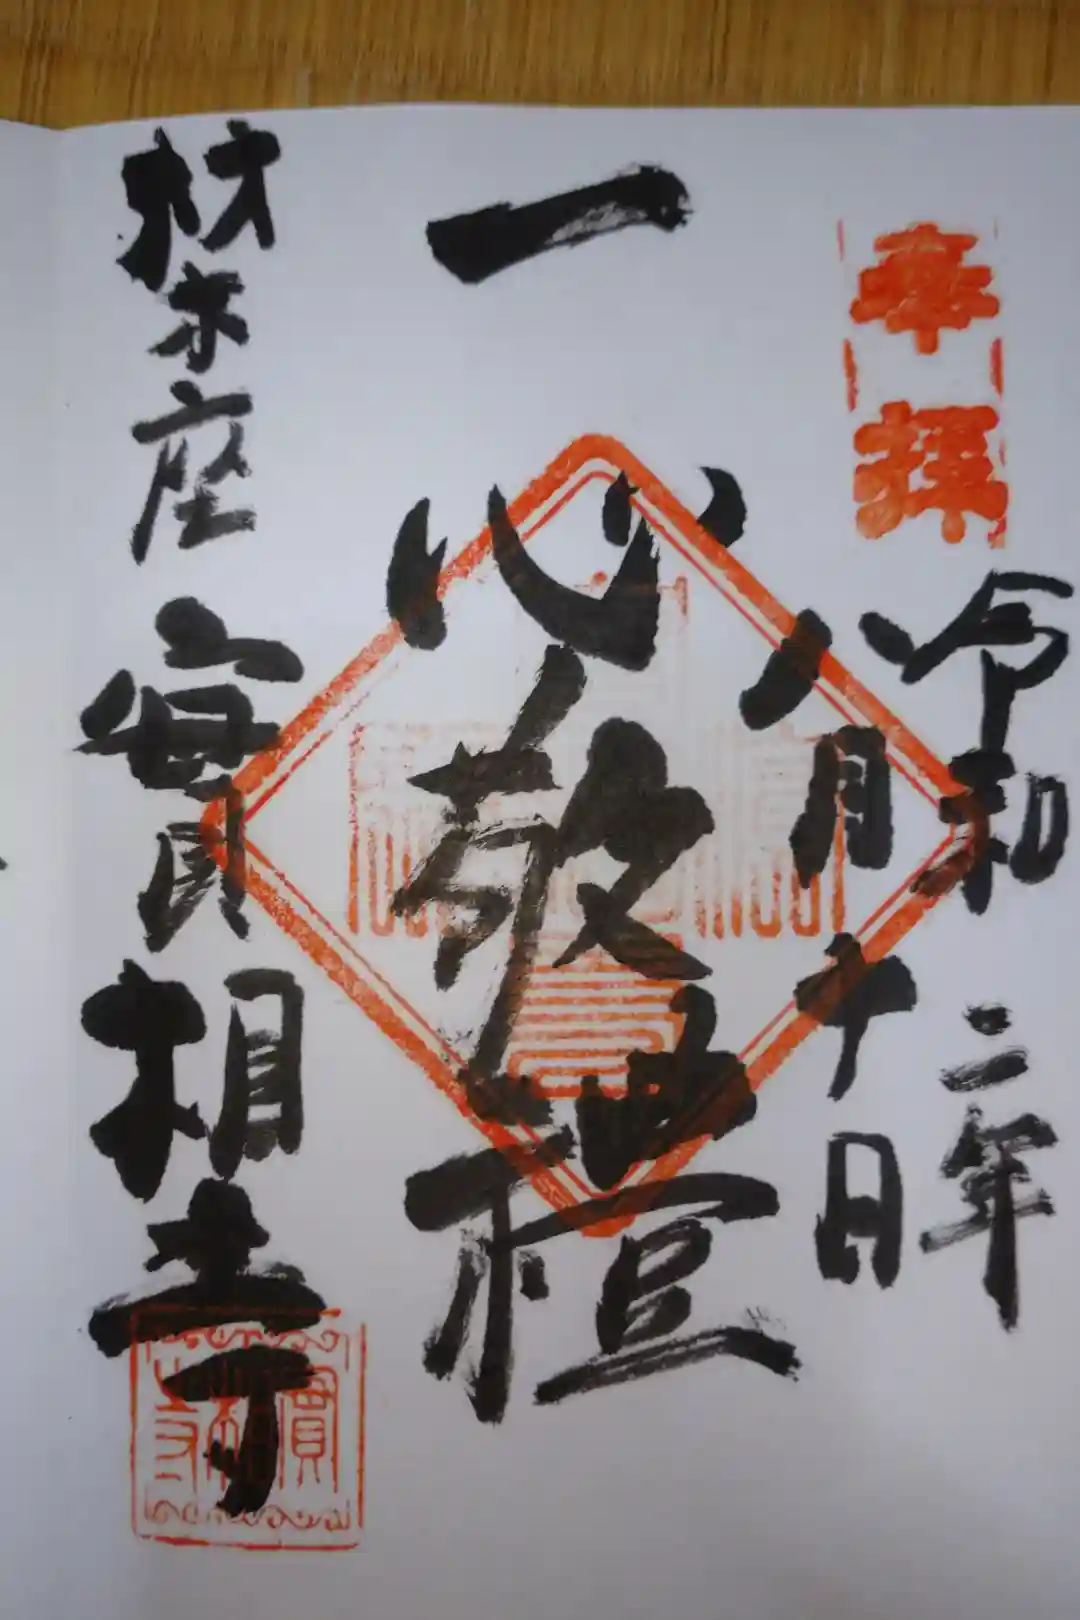 奉拝
令和二年
八月十日
一心敬禮
材木座
實相寺
實相寺